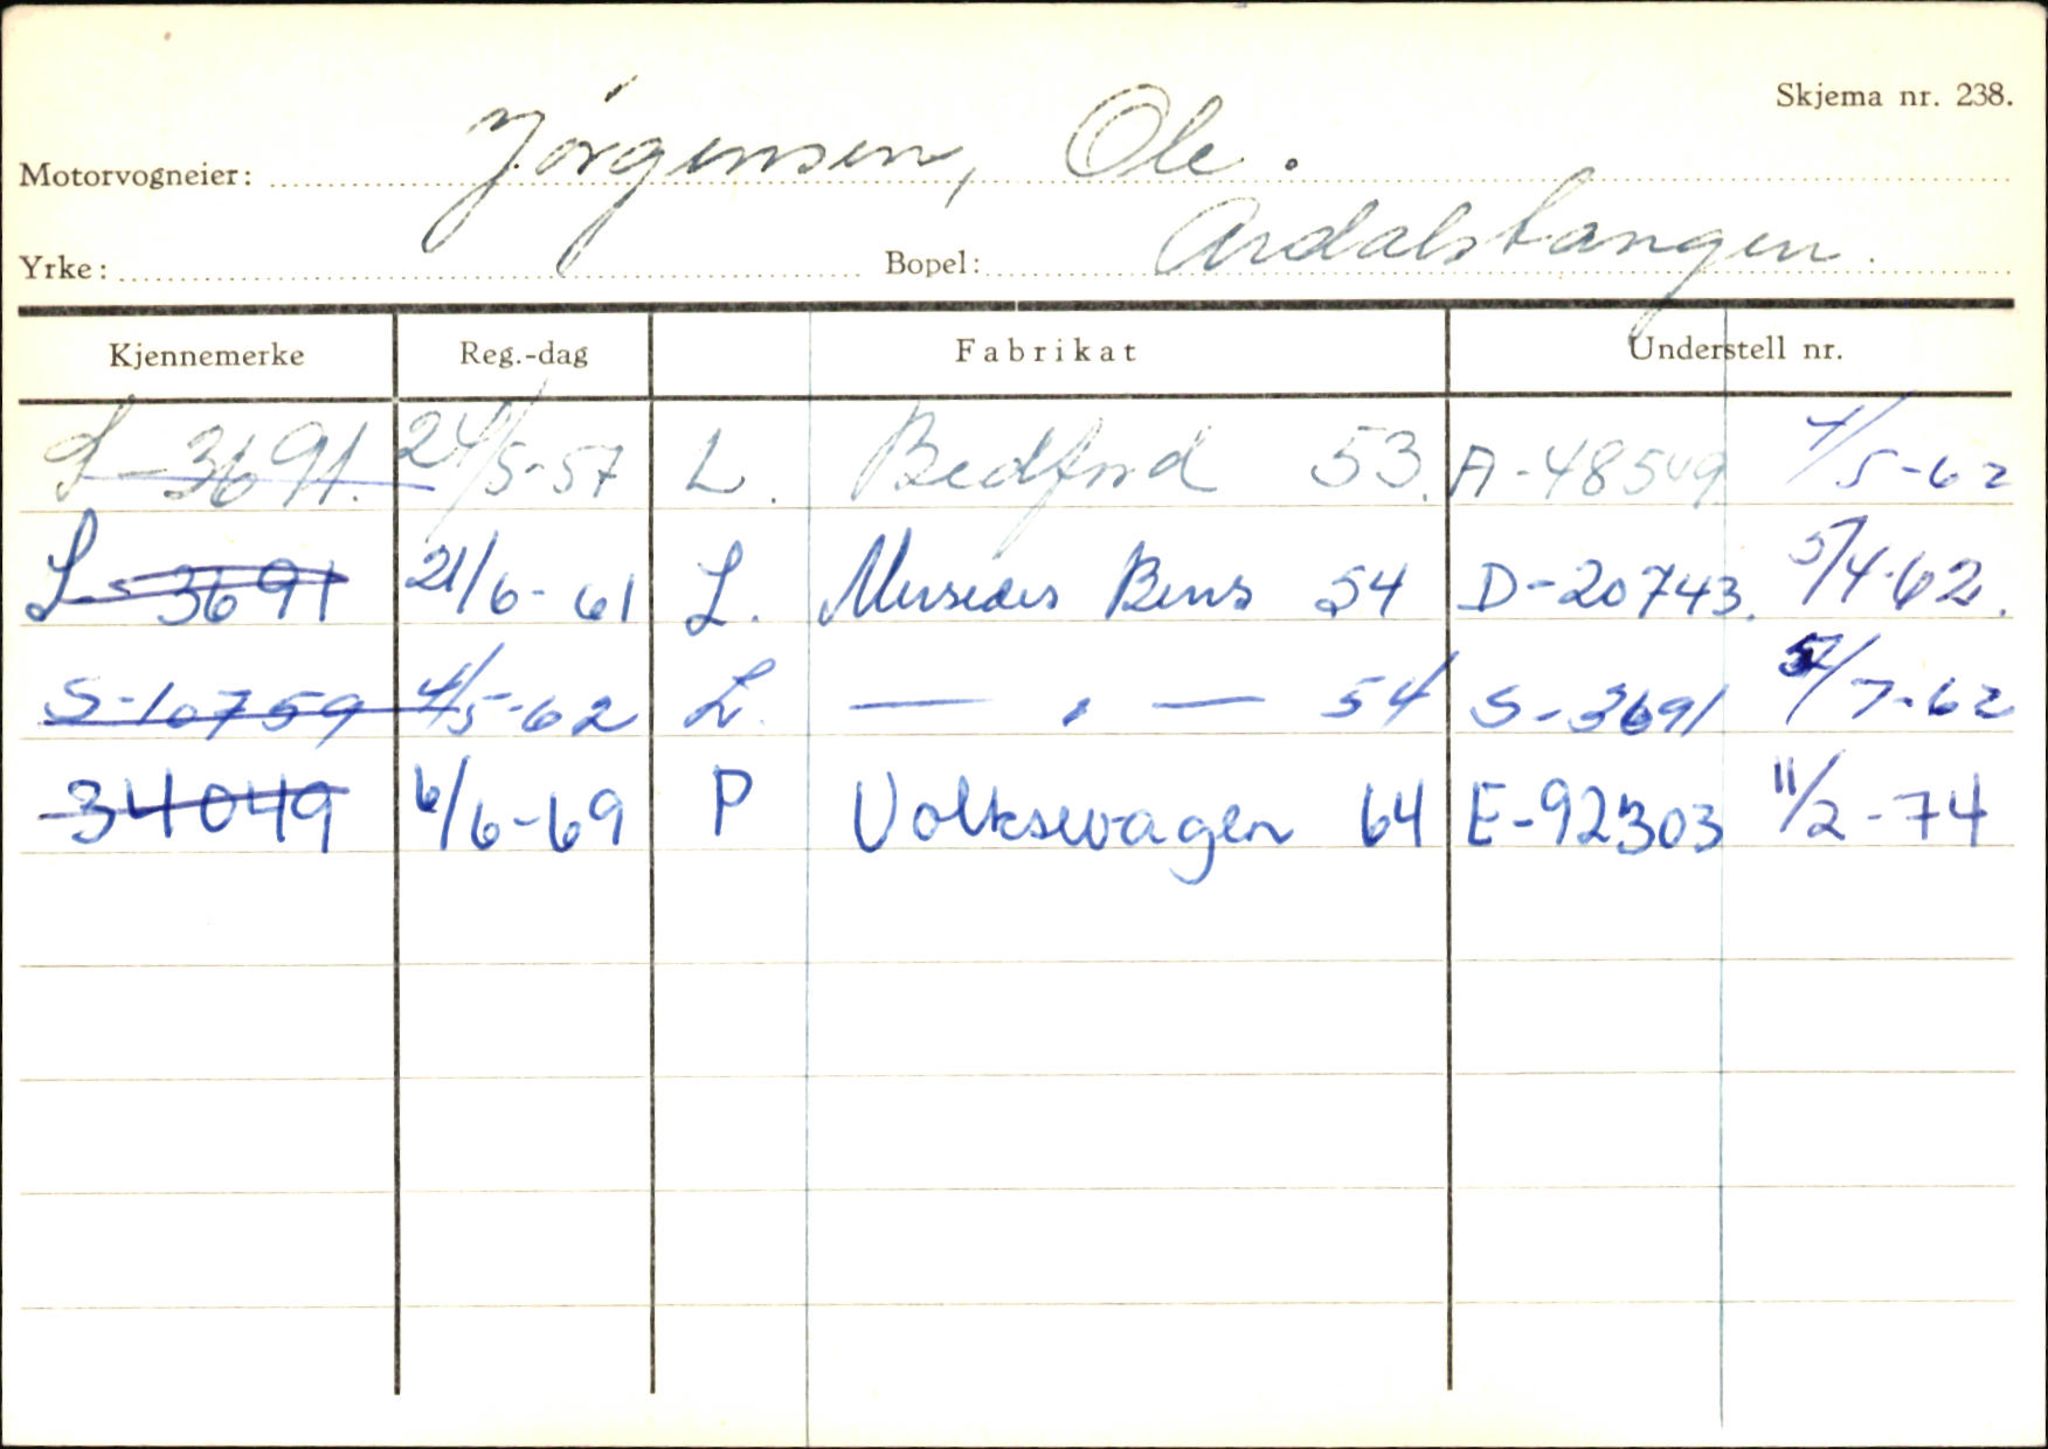 Skjema nr. 238.
Motorvogneier: Jörgensen, Ole.
Yrke: Bopel: Ardalstangen.
Kjennemerke Reg.-dag Fabrikat Understell nr.
L-3691. 24/5-57 L. Bedford 53. A-48549 4/5-62
L-3691 21/6-61 L. Mersedes Bens 54 D-20743. 5/4-62.
S-10759 4/5-62 L. — " — 54 S-3691 /7-62
34049 6/6-69 P Volkswagen 64 E-92303 11/2-74